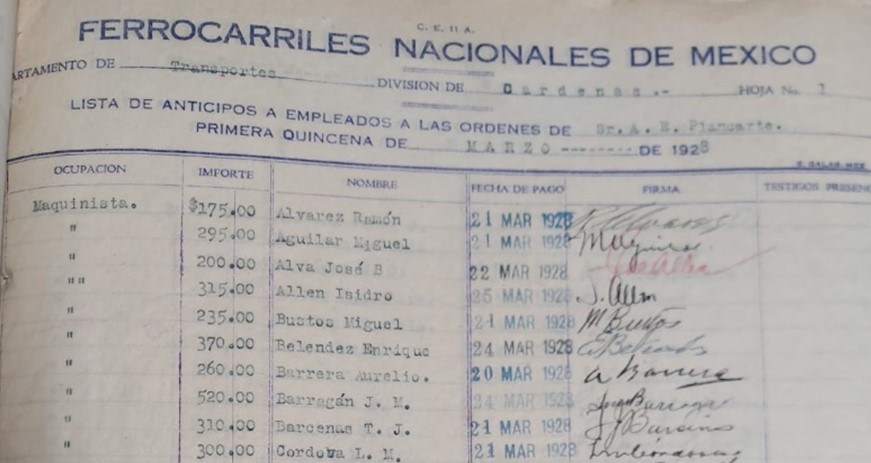 C. E. 11 A.
FERROCARRILES NACIONALES DE MEXICO
ARTAMENTO DE Transportes DIVISION DE Cardenas.- HOJA No. 1
LISTA DE ANTICIPOS A EMPLEADOS A LAS ORDENES DE Sr. A. E. Plancarte.
PRIMERA QUINCENA DE MARZO -------- DE 1928
OCUPACION IMPORTE NOMBRE FECHA DE PAGO FIRMA TESTIGOS PRESENC
Maquinista. $175.00 Alvarez Ramón 21 MAR 1928
" 295.00 Aguilar Miguel 21 MAR 1928
" 200.00 Alva José B 22 MAR 1928 José Alva
"" 315.00 Allen Isidro 26 MAR 1928 J. Allen
" 235.00 Bustos Miguel 21 MAR 1928 M Bustos
" 370.00 Belendez Enrique 24 MAR 1928
" 260.00 Barrera Aurelio. 20 MAR 1928 A Barrera
" 520.00 Barragán J. M. 24 MAR 1928
" 310.00 Barcenas T. J. 21 MAR 1928
" 300.00 Cordova L. M. 21 MAR 1928